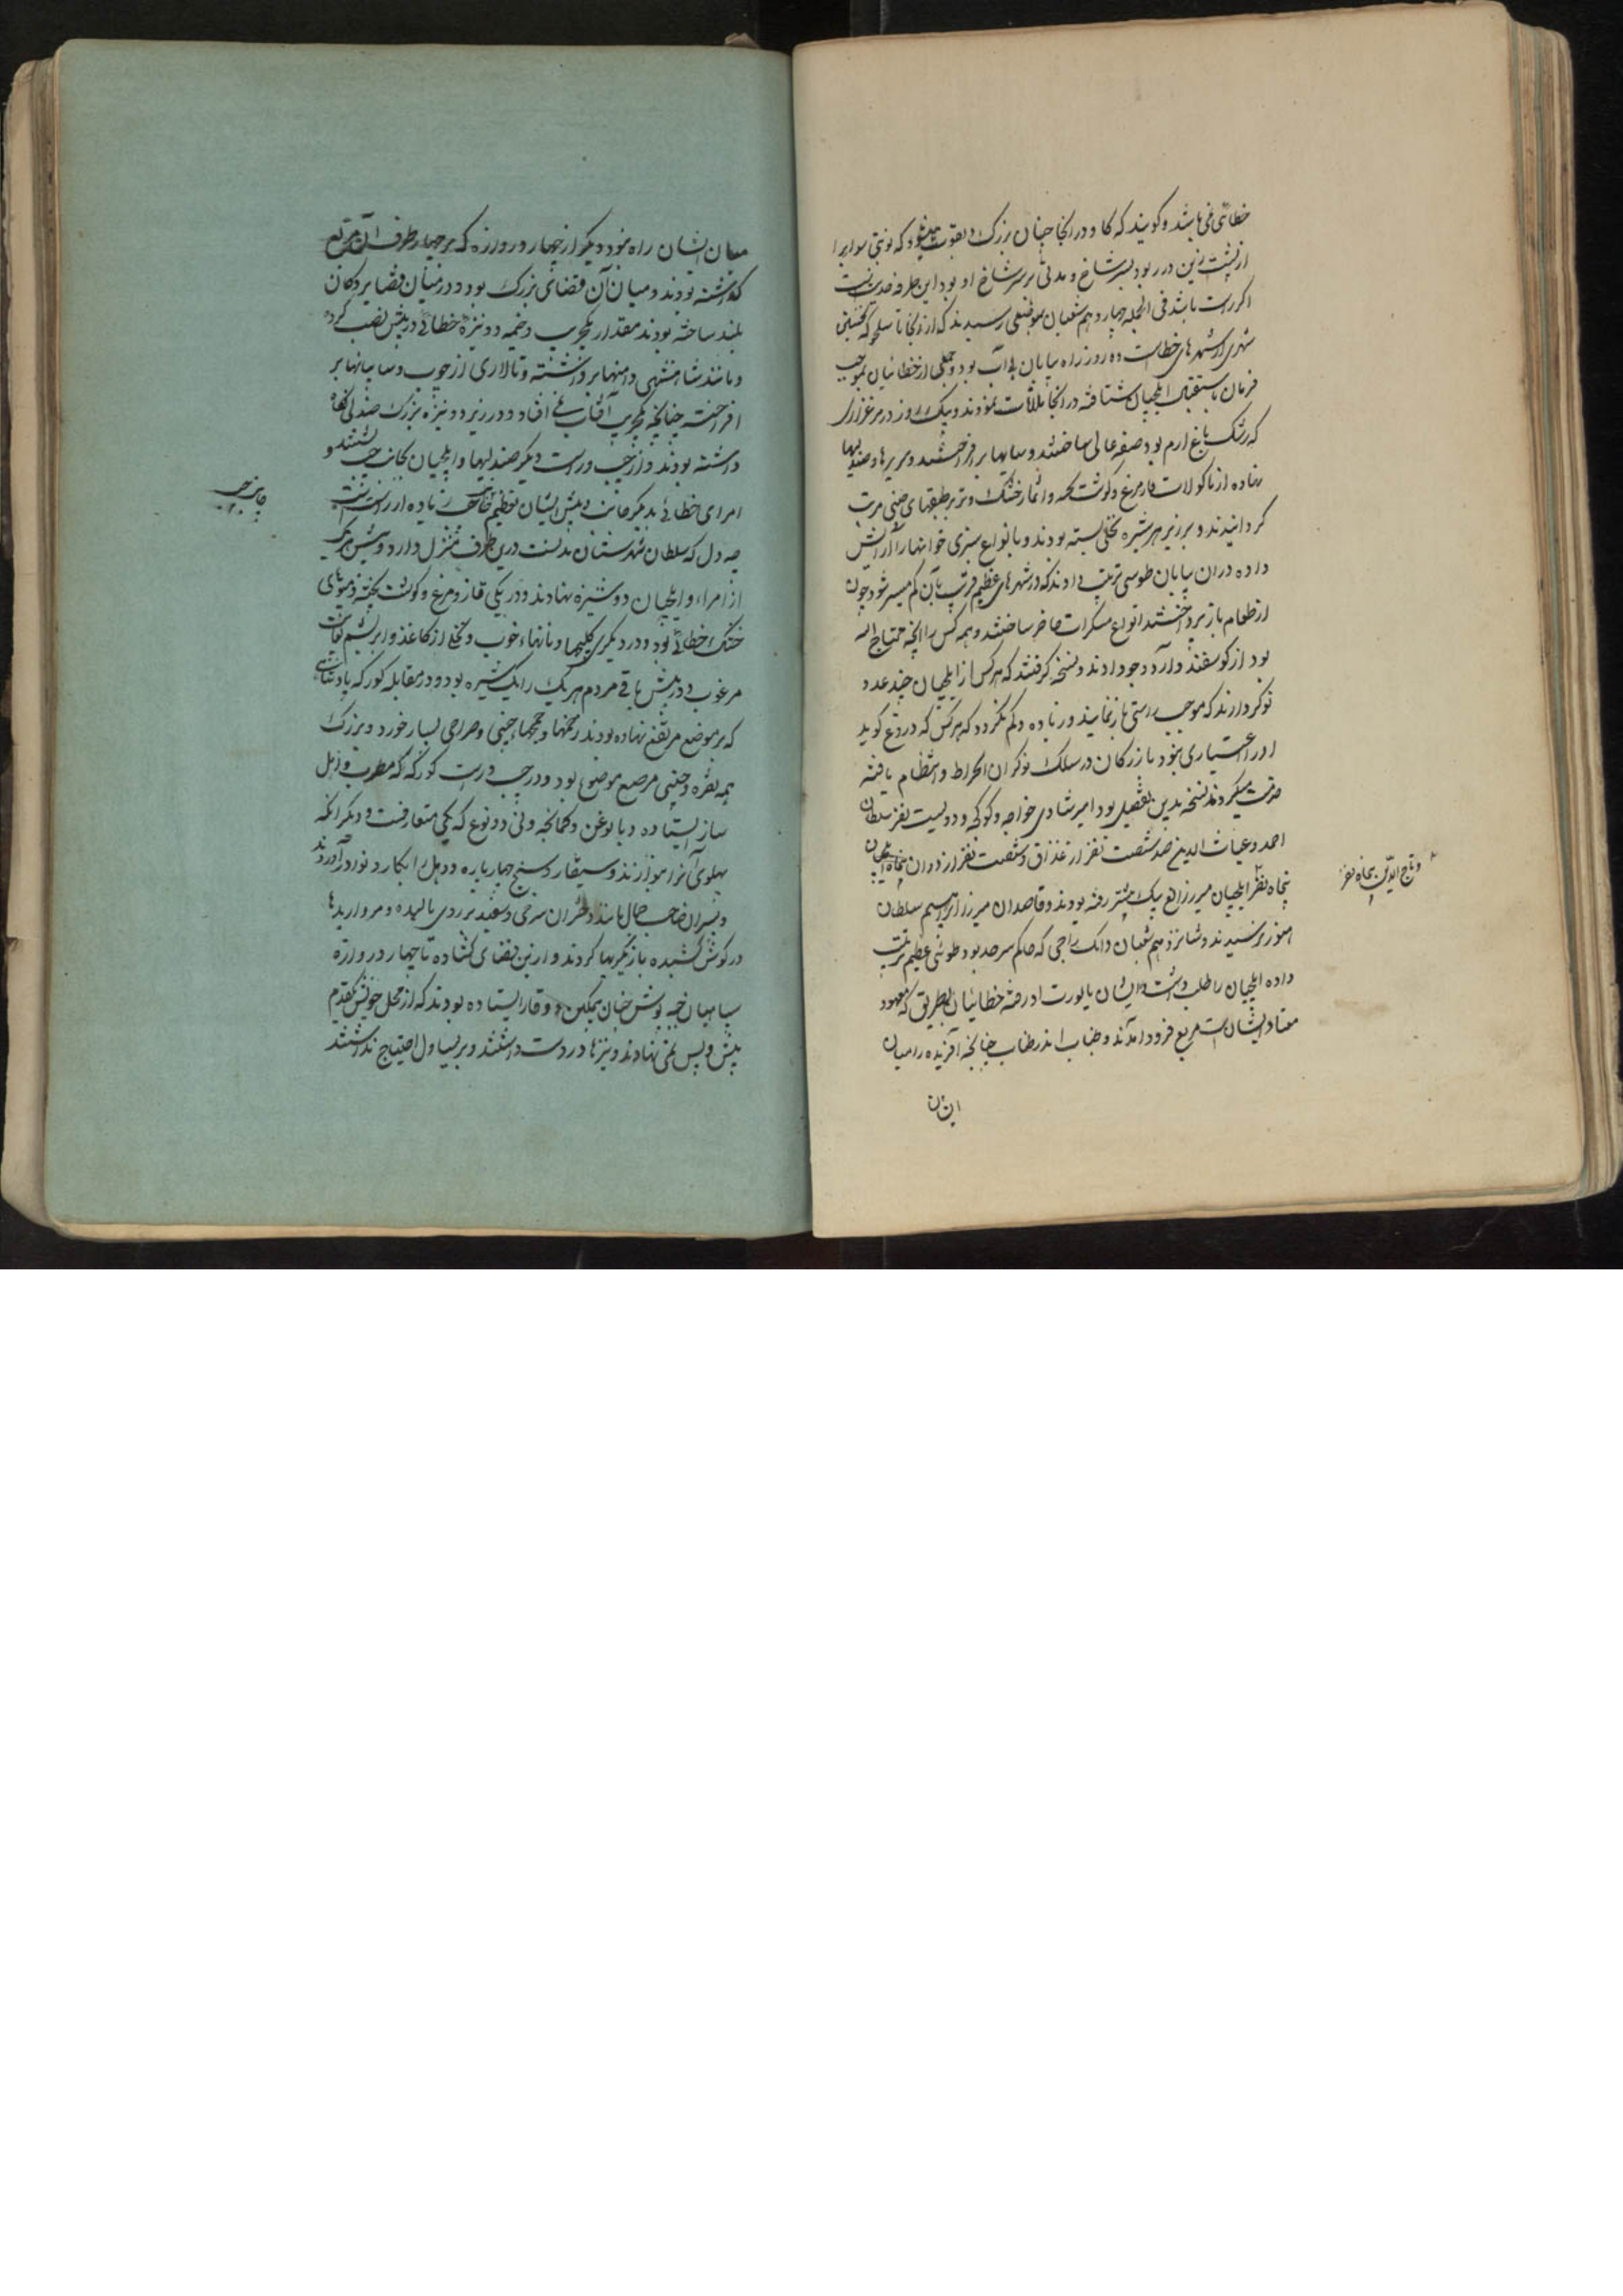 خطائی می باشد و کویند که کاو در انجا چنان بزرک و بقوت میشود که نوبتی سواریرا
از پشت زین در ربود بسر شاخ و مدتی بر سر شاخ او بود این طرفه حدیثیست
اکر راست باشد فی الجمله چهاردهم شعبان بموضعی رسیدند که از انجا تا سکجو که نخستین
شهری از شهرهای خطاست ده روزه راه بیابان بی آب بود و جمعی از خطائیان بموجب
فرمان باستقبال ایلچیان شتافته در انجا ملاقات نمودند و یک روز در مرغزاری
که رشک باغ ارم بود صفه عالی ساختند و سایبانها بر افراختند و سریرها و صندلیها
نهاده از ماکولات قاز و مرغ و کوشت پخته و اثمار خشک و تر بر طبقهای چینی مرتب
کردانیدند و بر زبر هر شیره نخلی بسته بودند و بانواع سبزی خوانها را آرایش
داده در ان بیابان طوسی ترتیب دادند که در شهرهای عظیم قریب بآن کم میسر شود چون
از طعام باز پرداختند انواع مسکرات حاضر ساختند و همه کس را آنچه محتاج الیه
بود از کوسفند و آرد و جو دادند و نسخه کرفتند که هر کس از ایلچیان چند عدد
نوکر دارند که بموجب راستی باز نمایند و زیاده و کم نکردد که هر کس که دروغ کوید
او را اعتباری نبود بازرکانان در سلک نوکران انخراط و انتظام یافته
خدمت میکردند نسخه بدین تفصیل بود امیر شادی خواجه و کوکجه و دویست نفر سلطان
احمد و غیاث الدین صد و شصت نفر ارغداق و شصت نفر اردوان پنجاه
پنجاه نفر ایلچیان میرزا الغ بیک پیشتر رفته بودند و قاصدان میرزا ابراهیم سلطان
هنوز نرسیدند و شانزدهم شعبان وانک داجی که حاکم سرحد بود طوئی عظیم ترتیب
داده ایلچیان را طلب داشت و ایشان بایورت او رفتند خطائیان بطریق که معهود
معتاد ایشان است مربع فرود آمدند و طناب اندر طناب چنانچه آفریده را میان
ایشان
و تاج الدین پنجاه نفر
میان ایشان راه نبود دیکر از چهار دروازه که بر چهار طرف آن مربع
کذاشته بودند و میان آن فضای بزرک بود و در میان فضا بر دکان
بلند ساخته بودند مقدار یکجریب و خیمه دو نیزه خطائی در پیش نصب کرده
و مانند شاهنشهی دامنها بر داشته و تالاری از چوب و سایبانها بر
افراخته چنانچه یکجریب آفتاب نمی افتاد و در زیر دو نیزه بزرک صندلی نکاه
داشته بودند و از چپ و راست دیکر صندلیها و ایلچیان بجانب چپ نشستند و
امرای خطائی بدیکر جانب و پیش ایشان تعظیم جانب چپ زیاده از راست است
چه دل که سلطان شهرستان بدنست درین طرف منزل دارد و پیش هر یک
از امراء و ایلچیان دو شیره نهادند و در یکی قاز و مرغ و کوشت پخته و میوهای
خشک خطائی بود و در دیکری کلیچها و نانهاء خوب و نخلی از کاغذ و ابریشم بغایت
مرغوب و در پیش باقی مردم هر یک را یک شیره بود و در مقابله کورکه پادشاهی
که بر موضع مرتفع نهاده بودند و خمها و خمچهاء چینی و صراحی بسیار خورد و بزرک
همه نقره و چینی مرصع موضوع بود و در چپ و راست کورکه که مطرب و اهل
ساز ایستاده و یاتوغن و کمانچه و نی دو نوع که یکی متعارفست و دیکر انکه
پهلوی آنرا نوازند و موسیقار و سنج چهار پاره و دهل را بکار دنواد در آوردند
و پسران صاحب جمال مانند دختران سرخی و سفید بر روی مالیده و مرواریدها
در کوش کشیده بازیکریها کردند و از ین فضای کشاده تا چهار دروازه
سپاهیان جبه پوش چنان بتمکین و وقار ایستاده بودند که از محل خویش قدم
پیش و پس نمی نهادند و نیزها در دست داشتند و بریساول احتیاج نداشتند
جانب چپ